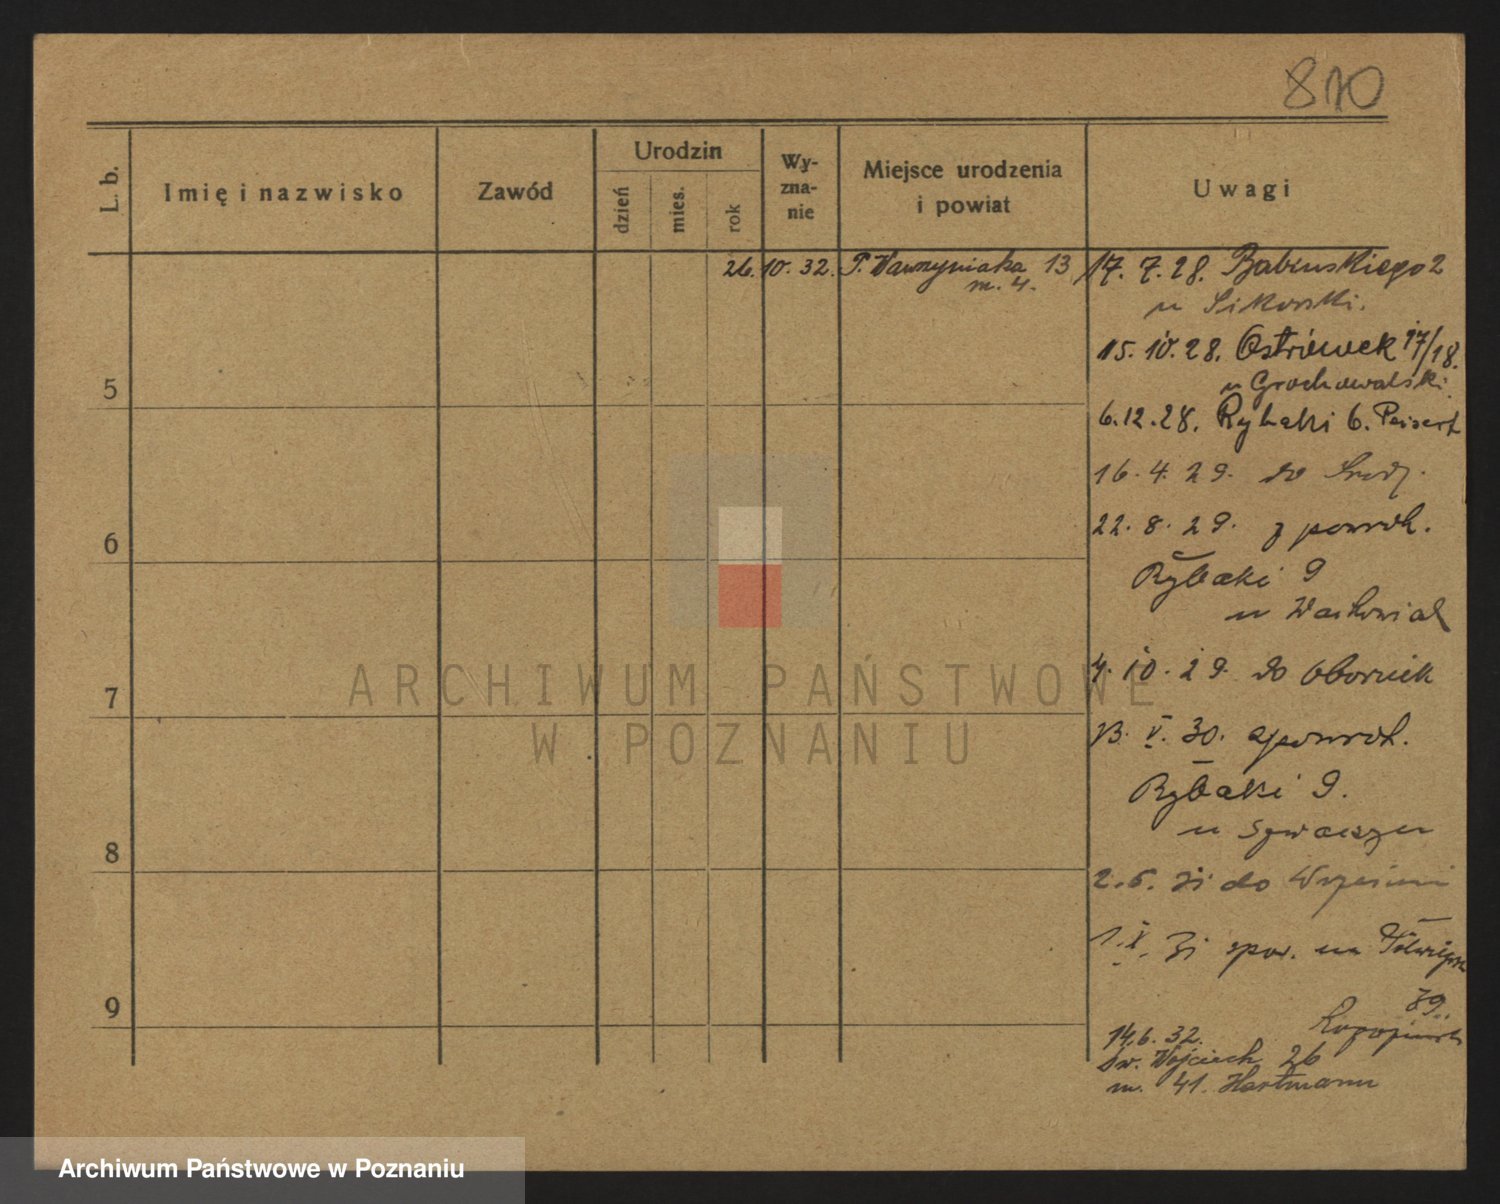 810
L. b.
Imię i nazwisko
Zawód
Urodzin
dzień
mies.
rok
Wy-
zna-
nie
Miejsce urodzenia
i powiat
Uwagi
26. 10. 32. P. Wawrzyniaka 13
m. 4.
17. 7. 28. 2
u Sikorski.
15. 10. 28. Ostrówek 17/18.
u Grochowalski.
6. 12. 28. Rybaki 6. Peisert
16. 4. 29. do
22. 8. 29. z powrot.
Rybaki 9
u Wachowiak
4. 10. 29. do Obornik
13. V. 30. z powrot.
Rybaki 9.
u
2. 6. 31 do Wrześni
1. X. 31 z pow. na
39.
14. 6. 32.
Św. Wojciech 26
m. 41. Hartmann
5
6
7
8
9
ARCHIWUM PAŃSTWOWE
W POZNANIU
Archiwum Państwowe w Poznaniu